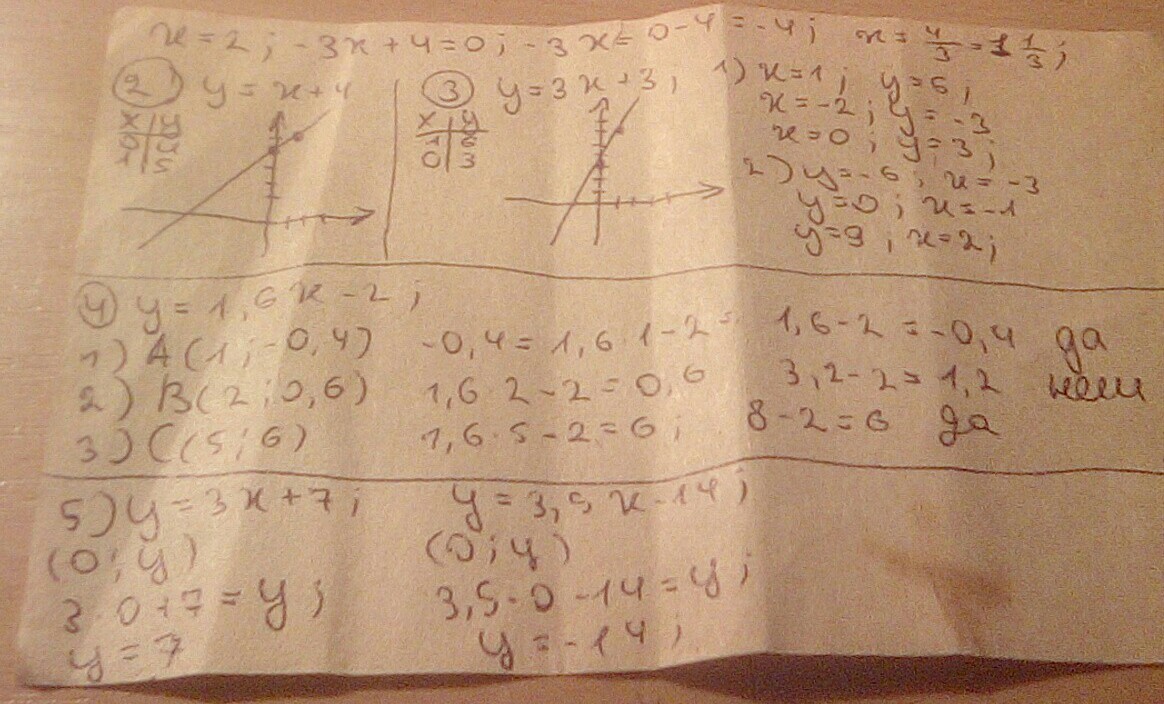 x = 2 ; -3x + 4 = 0 ; -3x = 0 - 4 = -4 ; x = 4/3 = 1 1/3 ;
② y = x + 4
x | y
③ y = 3x + 3 ;
x | y
0 | 3
1) x = 1 ; y = 6 ;
x = -2 ; y = -3
x = 0 ; y = 3 ;
2) y = -6 ; x = -3
y = 0 ; x = -1
y = 9 ; x = 2 ;
④ y = 1,6x - 2 ;
1) A(1 ; -0,4) -0,4 = 1,6·1 - 2 = 1,6 - 2 = -0,4 да
2) B(2 ; 0,6) 1,6·2 - 2 = 0,6 3,2 - 2 = 1,2 нет
3) C(5 ; 6) 1,6·5 - 2 = 6 ; 8 - 2 = 6 да
5) y = 3x + 7 ; y = 3,5x - 14 ;
(0 ; y) (0 ; y)
3·0 + 7 = y ; 3,5·0 - 14 = y ;
y = 7 y = -14 ;